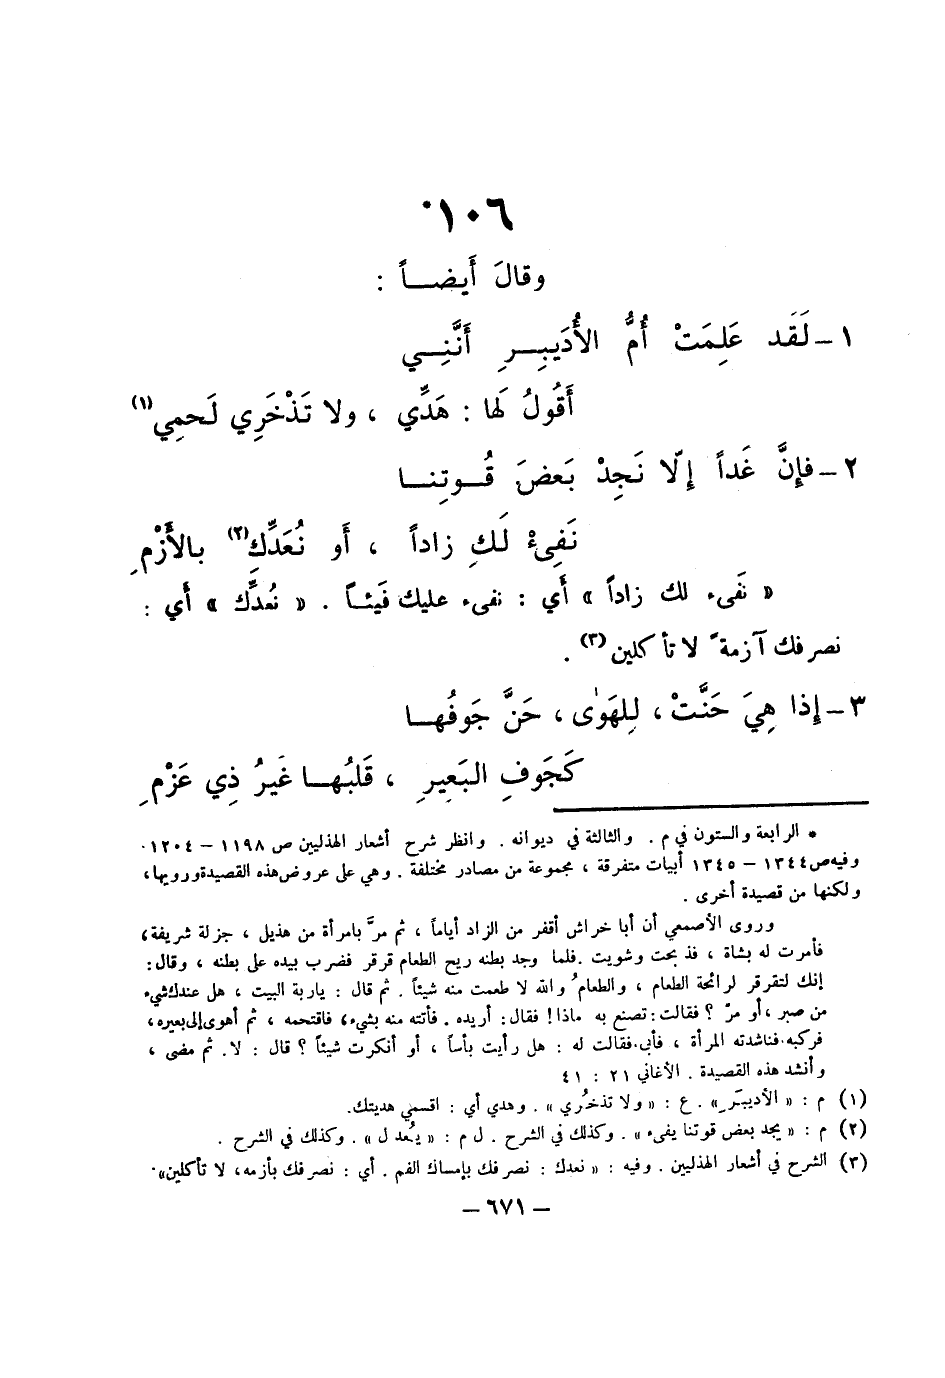 ١٠٦*
وقالَ أَيضاً :
١ ـ لَقَد عَلِمَتْ أُمُّ الأُدَيبِرِ أَنَّنِي
أَقُولُ لَها : هَدِّي ، ولا تَذْخَرِي لَحمِي (١)
٢ ـ فإِنَّ غَداً إِلّا نَجِدْ بَعضَ قُوتِنا
نَفِىءْ لَكِ زاداً ، أَو نُعَدِّكِ (٢) بالأَزْمِ
« نَفىء لك زاداً » أَي : نفىء عليك فَيئاً . « نُعدِّك » أَي :
نصرفك آزمةً لا تأكلين (٣) .
٣ ـ إِذا هِيَ حَنَّتْ ، لِلهَوٰى ، حَنَّ جَوفُها
كَجَوفِ البَعِيرِ ، قَلبُها غَيرُ ذِي عَزْمِ
* الرابعة والستون في م . والثالثة في ديوانه . وانظر شرح أشعار الهذليين ص ١١٩٨ – ١٢٠٤ .
وفيه ص ١٣٤٤ – ١٣٤٥ أبيات متفرقة ، مجموعة من مصادر مختلفة . وهي على عروض هذه القصيدة ورويها ،
ولكنها من قصيدة أخرى .
وروى الأصمعي أن أبا خراش أقفر من الزاد أياماً ، ثم مرَّ بامرأة من هذيل ، جزلة شريفة ،
فأمرت له بشاة ، فذبحت وشويت . فلما وجد بطنه ريح الطعام قرقر فضرب بيده على بطنه ، وقال :
إنك لتقرقر لرائحة الطعام ، والطعامُ والله لا طعمت منه شيئاً . ثم قال : ياربة البيت ، هل عندك شيء
من صبر ، أو مرّ ؟ فقالت : تصنع به ماذا ! فقال : أريده . فأتته منه بشيء ، فاقتحمه ، ثم أهوى إلى بعيره ،
فركبه . فناشدته المرأة ، فأبى . فقالت له : هل رأيت بأساً ، أو أنكرت شيئاً ؟ قال : لا . ثم مضى ،
وأنشد هذه القصيدة . الأغاني ٢١ : ٤١
(١) م : « الأديبَرِ » . ع : « ولا تذخُري » . وهدي أي : اقسمي هديتك .
(٢) م : « يجد بعض قوتنا يفىء » . وكذلك في الشرح . ل م : « يُعدل » . وكذلك في الشرح .
(٣) الشرح في أشعار الهذليين . وفيه : « نعدك : نصرفك بإمساك الفم . أي : نصرفك بأزمه ، لا تأكلين » .
– ٦٧١ –